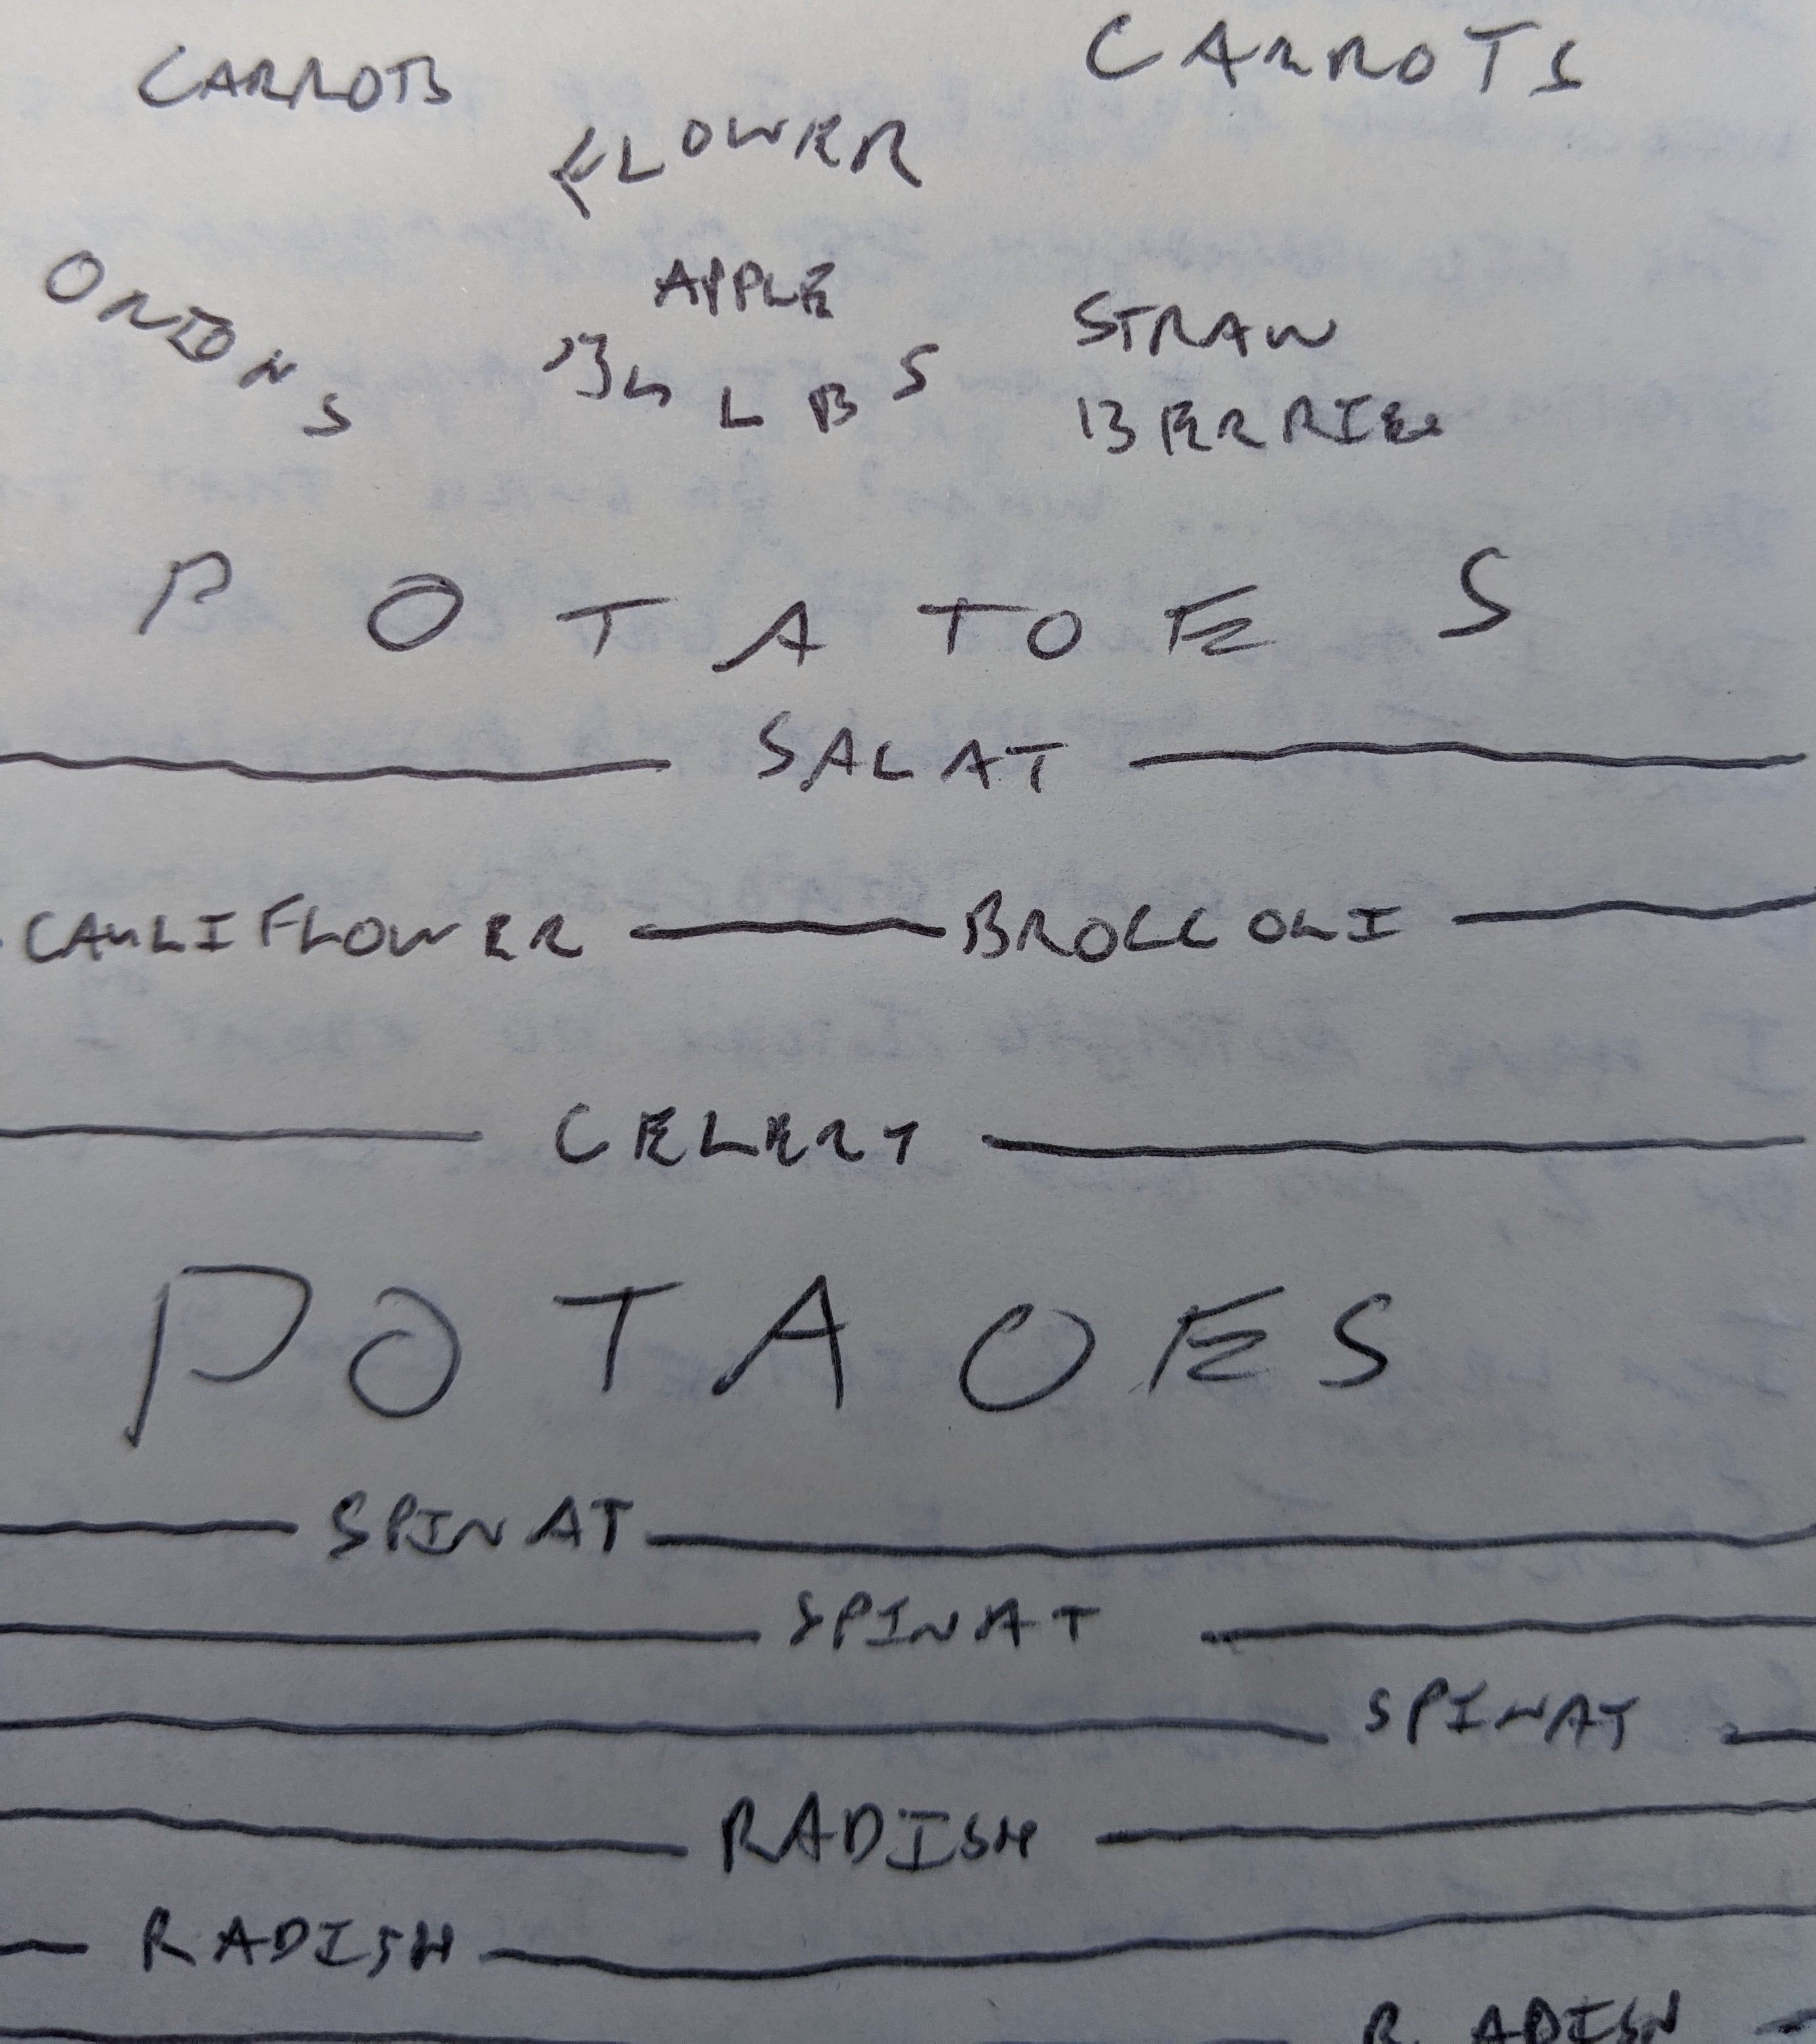 CARROTS CARROTS
FLOWER
ONIONS APPLE STRAW
BULBS BERRIES
POTATOES
SALAT
CAULIFLOWER BROCCOLI
CELERY
POTAOES
SPINAT
SPINAT
SPINAT
RADISH
RADISH
RADISH